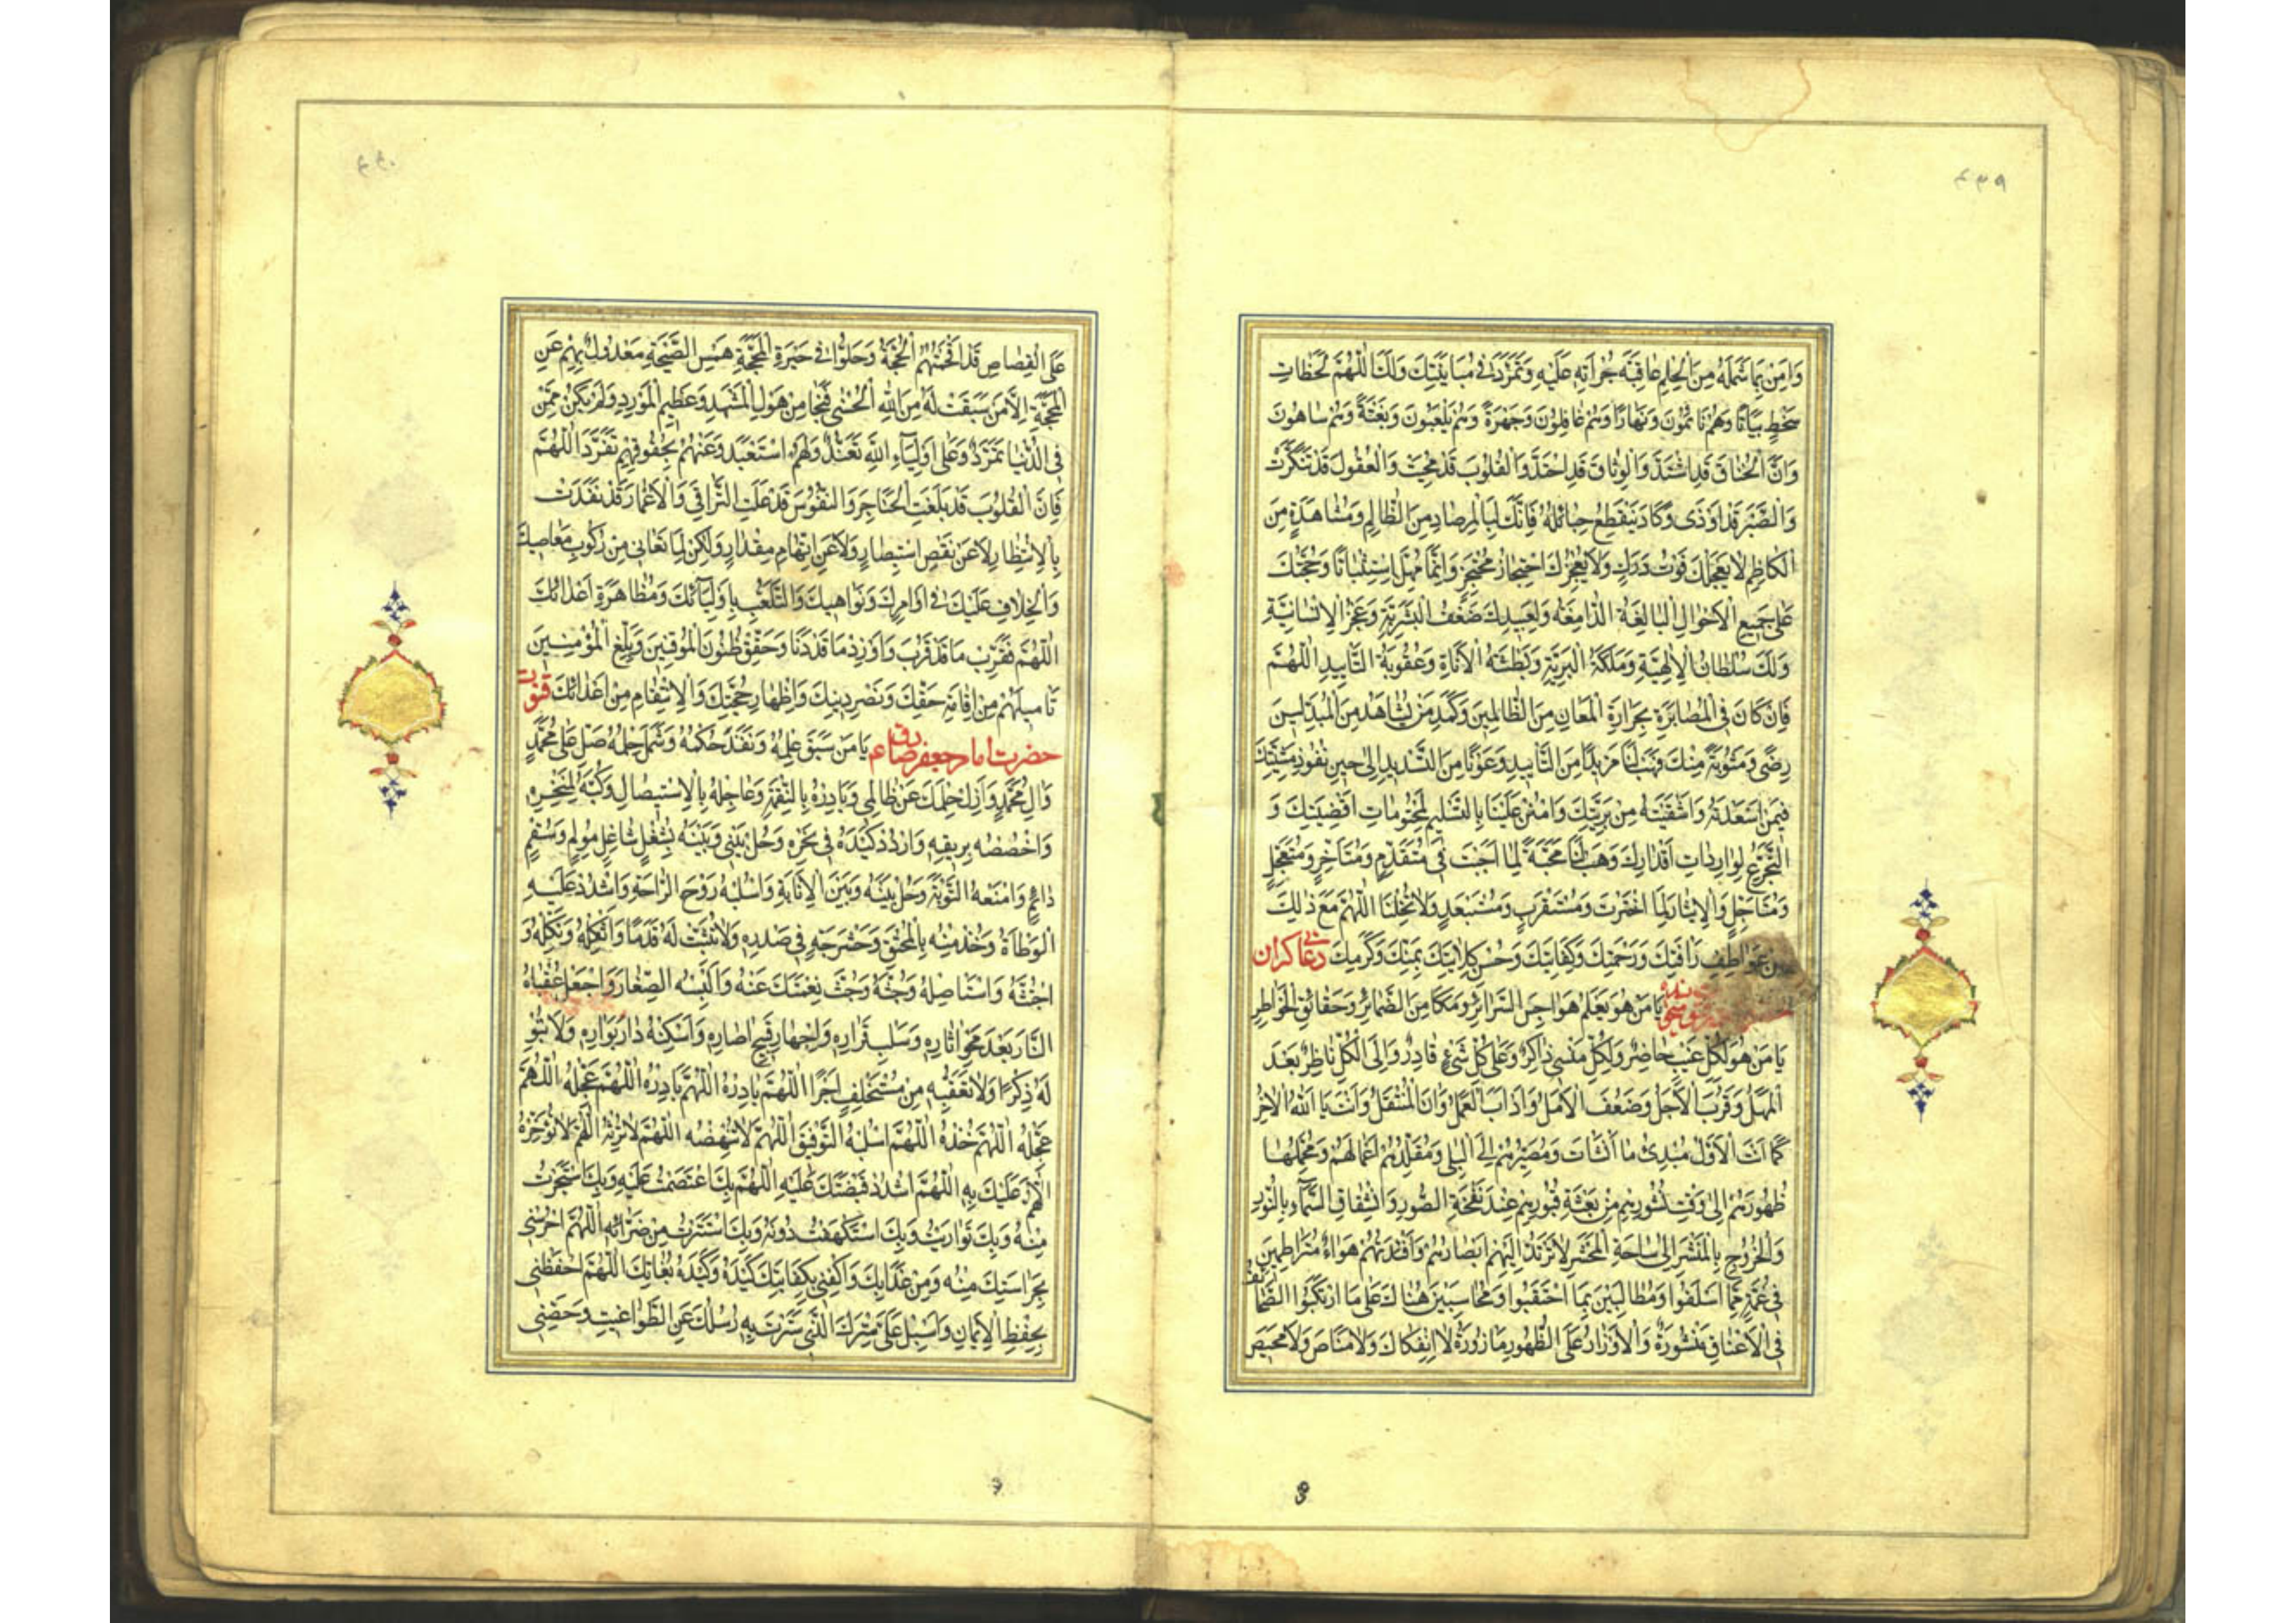 ٤٣٩
وَامِنَ بِمَا شَمِلَهُ مِنَ الْحِلْمِ عَاقِبَةَ جُرْأَتِهِ عَلَيْهِ وَتَمَرَّدَ فِي مُبَايَنَتِكَ وَلَكَ اللّٰهُمَّ لَحَظَاتِ
سَخَطٍ بَيَاتًا وَهُمْ نَائِمُونَ وَنَهَارًا وَهُمْ غَافِلُونَ وَجَهْرَةً وَهُمْ يَلْعَبُونَ وَبَغْتَةً وَهُمْ سَاهُونَ
وَاَنَّ الْخِنَاقَ قَدِ اشْتَدَّ وَالْوِثَاقَ قَدِ احْتَدَّ وَالْقُلُوبَ قَدْ مُحِيَتْ وَالْعُقُولَ قَدْ تَنَكَّرَتْ
وَالصَّبْرَ قَدْ اَوْذَى وَكَادَ يَنْقَطِعُ حَبَائِلُهُ فَاِنَّكَ لَبِالْمِرْصَادِ مِنَ الظَّالِمِ وَمُشَاهَدَةٍ مِنَ
الْكَاظِمِ لَا يُعَجِّلُكَ فَوْتُ دَرَكٍ وَلَا يُعْجِزُكَ احْتِجَازُ مُحْتَجِزٍ وَاِنَّمَا مُهِّلَ اسْتِثْبَاتًا وَحُجَّتُكَ
عَلَى جَمِيعِ الْاَحْوَالِ الْبَالِغَةُ الدَّامِغَةُ وَلِعَبِيدِكَ ضَعْفُ الْبَشَرِيَّةِ وَعَجْزُ الْاِنْسَانِيَّةِ
وَلَكَ سُلْطَانُ الْاِلٰهِيَّةِ وَمَلَكَةُ الْبَرِيَّةِ وَبَطْشَةُ الْاَنَاةِ وَعُقُوبَةُ التَّابِيدِ اَللّٰهُمَّ
فَاِنْ كَانَ فِي الْمُصَابَرَةِ بِحَرَارَةِ الْمَعَانِ مِنَ الظَّالِمِينَ وَكَمَدِ مَنْ يُشَاهِدُ مِنَ الْمُبَدِّلِينَ
رِضًى وَمَثُوبَةً مِنْكَ فَهَبْ لَنَا مَزِيدًا مِنَ التَّايِيدِ وَعَوْنًا مِنَ التَّسْدِيدِ اِلَى حِينِ نُفُوذِ مَشِيَّتِكَ
فِيمَنْ اَسْعَدْتَهُ وَاَشْقَيْتَهُ مِنْ بَرِيَّتِكَ وَامْنُنْ عَلَيْنَا بِالتَّسْلِيمِ لِمَحْتُومَاتِ اَقْضِيَتِكَ وَ
التَّجَرُّعِ لِوَارِدَاتِ اَقْدَارِكَ وَهَبْ لَنَا مَحَبَّةً لِمَا اَحْبَبْتَ فِي مُتَقَدِّمٍ وَمُتَاَخِّرٍ وَمُتَعَجِّلٍ
وَمُتَاَجِّلٍ وَالْاِيثَارَ لِمَا اخْتَرْتَ فِي مُسْتَقْرَبٍ وَمُسْتَبْعَدٍ وَلَا تُخْلِنَا اللّٰهُمَّ مَعَ ذٰلِكَ
مِنْ عَوَاطِفِ رَاْفَتِكَ وَرَحْمَتِكَ وَكِفَايَتِكَ وَحُسْنِ كِلَايَتِكَ بِمَنِّكَ وَكَرَمِكَ دعائی کران
يَا مَنْ هُوَ يَعْلَمُ هَوَاجِسَ السَّرَائِرِ وَمَكَامِنَ الضَّمَائِرِ وَحَقَائِقَ الْخَوَاطِرِ
يَا مَنْ هُوَ لِكُلِّ غَيْبٍ حَاضِرٌ وَلِكُلِّ مَنْسِيٍّ ذَاكِرٌ وَعَلَى كُلِّ شَيْءٍ قَادِرٌ وَاِلَى الْكُلِّ نَاظِرٌ بَعُدَ
الْمَهَلُ وَقَرُبَ الْاَجَلُ وَضَعُفَ الْاَمَلُ وَاٰدَابَ الْعَمَلُ وَاٰنَ الْمُنْتَقَلُ وَاَنْتَ يَا اَللّٰهُ الْاٰخِرُ
كَمَا اَنْتَ الْاَوَّلُ مُبْدِئُ مَا اَنْشَاْتَ وَمُصَيِّرُهُمْ اِلَى الْبِلَى وَمُقَلِّدُهُمْ اَعْمَالَهُمْ وَمُحَمِّلُهَا
ظُهُورَهُمْ اِلَى وَقْتِ نُشُورِهِمْ مِنْ بَعْثَةِ قُبُورِهِمْ عِنْدَ نَفْخَةِ الصُّورِ وَانْشِقَاقِ السَّمَاءِ بِالنُّورِ
وَالْخُرُوجِ بِالْمَنْشَرِ اِلَى سَاحَةِ الْمَحْشَرِ لَا تَرْتَدُّ اِلَيْهِمْ اَبْصَارُهُمْ وَاَفْئِدَتُهُمْ هَوَاءٌ مُتَرَاطِمِينَ
فِي غُمَّةٍ مِمَّا اَسْلَفُوا وَمُطَالَبِينَ بِمَا احْتَقَبُوا وَمُحَاسَبِينَ هُنَاكَ عَلَى مَا ارْتَكَبُوا الصَّحَائِفُ
فِي الْاَعْنَاقِ مَنْشُورَةٌ وَالْاَوْزَارُ عَلَى الظُّهُورِ مَازُورَةٌ لَا انْفِكَاكَ وَلَا مَنَاصَ وَلَا مَحِيصَ
٤٤٠
عَلَى الْقِصَاصِ قَدْ اَفْحَمَتْهُمُ الْحُجَّةُ وَحَلُّوا فِي حَيْرَةِ الْمَحَجَّةِ هَمْسِ الضَّجَّةِ مَعْدُولٌ بِهِمْ عَنِ
الْمَحَجَّةِ اِلَّا مَنْ سَبَقَتْ لَهُ مِنَ اللّٰهِ الْحُسْنَى فَنَجَا مِنْ هَوْلِ الْمَشْهَدِ وَعَظِيمِ الْمَوْرِدِ وَلَمْ يَكُنْ مِمَّنْ
فِي الدُّنْيَا تَمَرَّدَ وَعَلَى اَوْلِيَاءِ اللّٰهِ تَعَنَّدَ وَلَهُمُ اسْتَعْبَدَ وَعَنْهُمْ بِحُقُوقِهِمْ تَفَرَّدَ اَللّٰهُمَّ
فَاِنَّ الْقُلُوبَ قَدْ بَلَغَتِ الْحَنَاجِرَ وَالنُّفُوسَ قَدْ عَلَتِ التَّرَاقِيَ وَالْاَعْمَارَ قَدْ نَفِدَتْ
بِالْاِنْتِظَارِ لَا عَنْ نَقْصِ اسْتِبْصَارٍ وَلَا عَنِ اتِّهَامِ مِقْدَارٍ وَلٰكِنْ لِمَا تُعَانِي مِنْ رُكُوبِ مَعَاصِيكَ
وَالْخِلَافِ عَلَيْكَ فِي اَوَامِرِكَ وَنَوَاهِيكَ وَالتَّلَعُّبِ بِاَوْلِيَائِكَ وَمُظَاهَرَةِ اَعْدَائِكَ
اَللّٰهُمَّ فَقَرِّبْ مَا قَدْ قَرُبَ وَاَوْرِدْ مَا قَدْ دَنَا وَحَقِّقْ ظُنُونَ الْمُوقِنِينَ وَبَلِّغِ الْمُؤْمِنِينَ
تَاْمِيلَهُمْ مِنْ اِقَامَةِ حَقِّكَ وَنَصْرِ دِينِكَ وَاِظْهَارِ حُجَّتِكَ وَالْاِنْتِقَامِ مِنْ اَعْدَائِكَ قنوت
حضرت امام جعفر صادق ع يَا مَنْ سَبَقَ عِلْمُهُ وَنَفَذَ حُكْمُهُ وَشَمِلَ حِلْمُهُ صَلِّ عَلَى مُحَمَّدٍ
وَاٰلِ مُحَمَّدٍ وَاَزِلْ حِلْمَكَ عَنْ ظَالِمِي وَبَادِرْهُ بِالنَّقِمَةِ وَعَاجِلْهُ بِالْاِسْتِيصَالِ وَكُبَّهُ لِمَنْخِرِهِ
وَاغْصُصْهُ بِرِيقِهِ وَارْدُدْ كَيْدَهُ فِي نَحْرِهِ وَحُلْ بَيْنِي وَبَيْنَهُ بِشُغْلٍ شَاغِلٍ مُولِمٍ وَسُقْمٍ
دَائِمٍ وَامْنَعْهُ التَّوْبَةَ وَحُلْ بَيْنَهُ وَبَيْنَ الْاِنَابَةِ وَاسْلُبْهُ رَوْحَ الرَّاحَةِ وَاشْدُدْ عَلَيْهِ
الْوَطْاَةَ وَخُذْ مِنْهُ بِالْمُخَنَّقِ وَحَشْرِجْهُ فِي صَدْرِهِ وَلَا تُثَبِّتْ لَهُ قَدَمًا وَاثْكِلْهُ وَنَكِّلْهُ وَ
اجْتُثَّهُ وَاسْتَاْصِلْهُ وَجُثَّهُ وَجُثَّ نِعْمَتَكَ عَنْهُ وَاَلْبِسْهُ الصَّغَارَ وَاجْعَلْ عُقْبَاهُ
النَّارَ بَعْدَ مَحْوِ اٰثَارِهِ وَسَلْبِ قَرَارِهِ وَاِجْهَارِ قَبِيحِ اٰصَارِهِ وَاَسْكِنْهُ دَارَ بَوَارِهِ وَلَا تُبْقِ
لَهُ ذِكْرًا وَلَا تُعَقِّبْهُ مِنْ مُسْتَخْلَفٍ اَجْرًا اَللّٰهُمَّ بَادِرْهُ اَللّٰهُمَّ بَادِرْهُ اَللّٰهُمَّ عَجِّلْهُ اَللّٰهُمَّ
عَجِّلْهُ اَللّٰهُمَّ خُذْهُ اَللّٰهُمَّ اسْلُبْهُ التَّوْفِيقَ اَللّٰهُمَّ لَا تُنْهِضْهُ اَللّٰهُمَّ لَا تَرِثْهُ اَللّٰهُمَّ لَا تُؤَخِّرْهُ
اَللّٰهُمَّ عَلَيْكَ بِهِ اَللّٰهُمَّ اشْدُدْ قَبْضَتَكَ عَلَيْهِ اَللّٰهُمَّ بِكَ اعْتَصَمْتُ عَلَيْهِ وَبِكَ اسْتَجَرْتُ
مِنْهُ وَبِكَ تَوَارَيْتُ وَبِكَ اسْتَكْهَفْتُ دُونَهُ وَبِكَ اسْتَتَرْتُ مِنْ ضَرَّائِهِ اَللّٰهُمَّ احْرُسْنِي
بِحِرَاسَتِكَ مِنْهُ وَمِنْ عَذَابِكَ وَاكْفِنِي بِكِفَايَتِكَ كَيْدَهُ وَكَيْدَ بُغَاتِكَ اَللّٰهُمَّ احْفَظْنِي
بِحِفْظِ الْاِيمَانِ وَاَسْبِلْ عَلَيَّ سِتْرَكَ الَّذِي سَتَرْتَ بِهِ رُسُلَكَ عَنِ الطَّوَاغِيتِ وَحَصِّنِّي